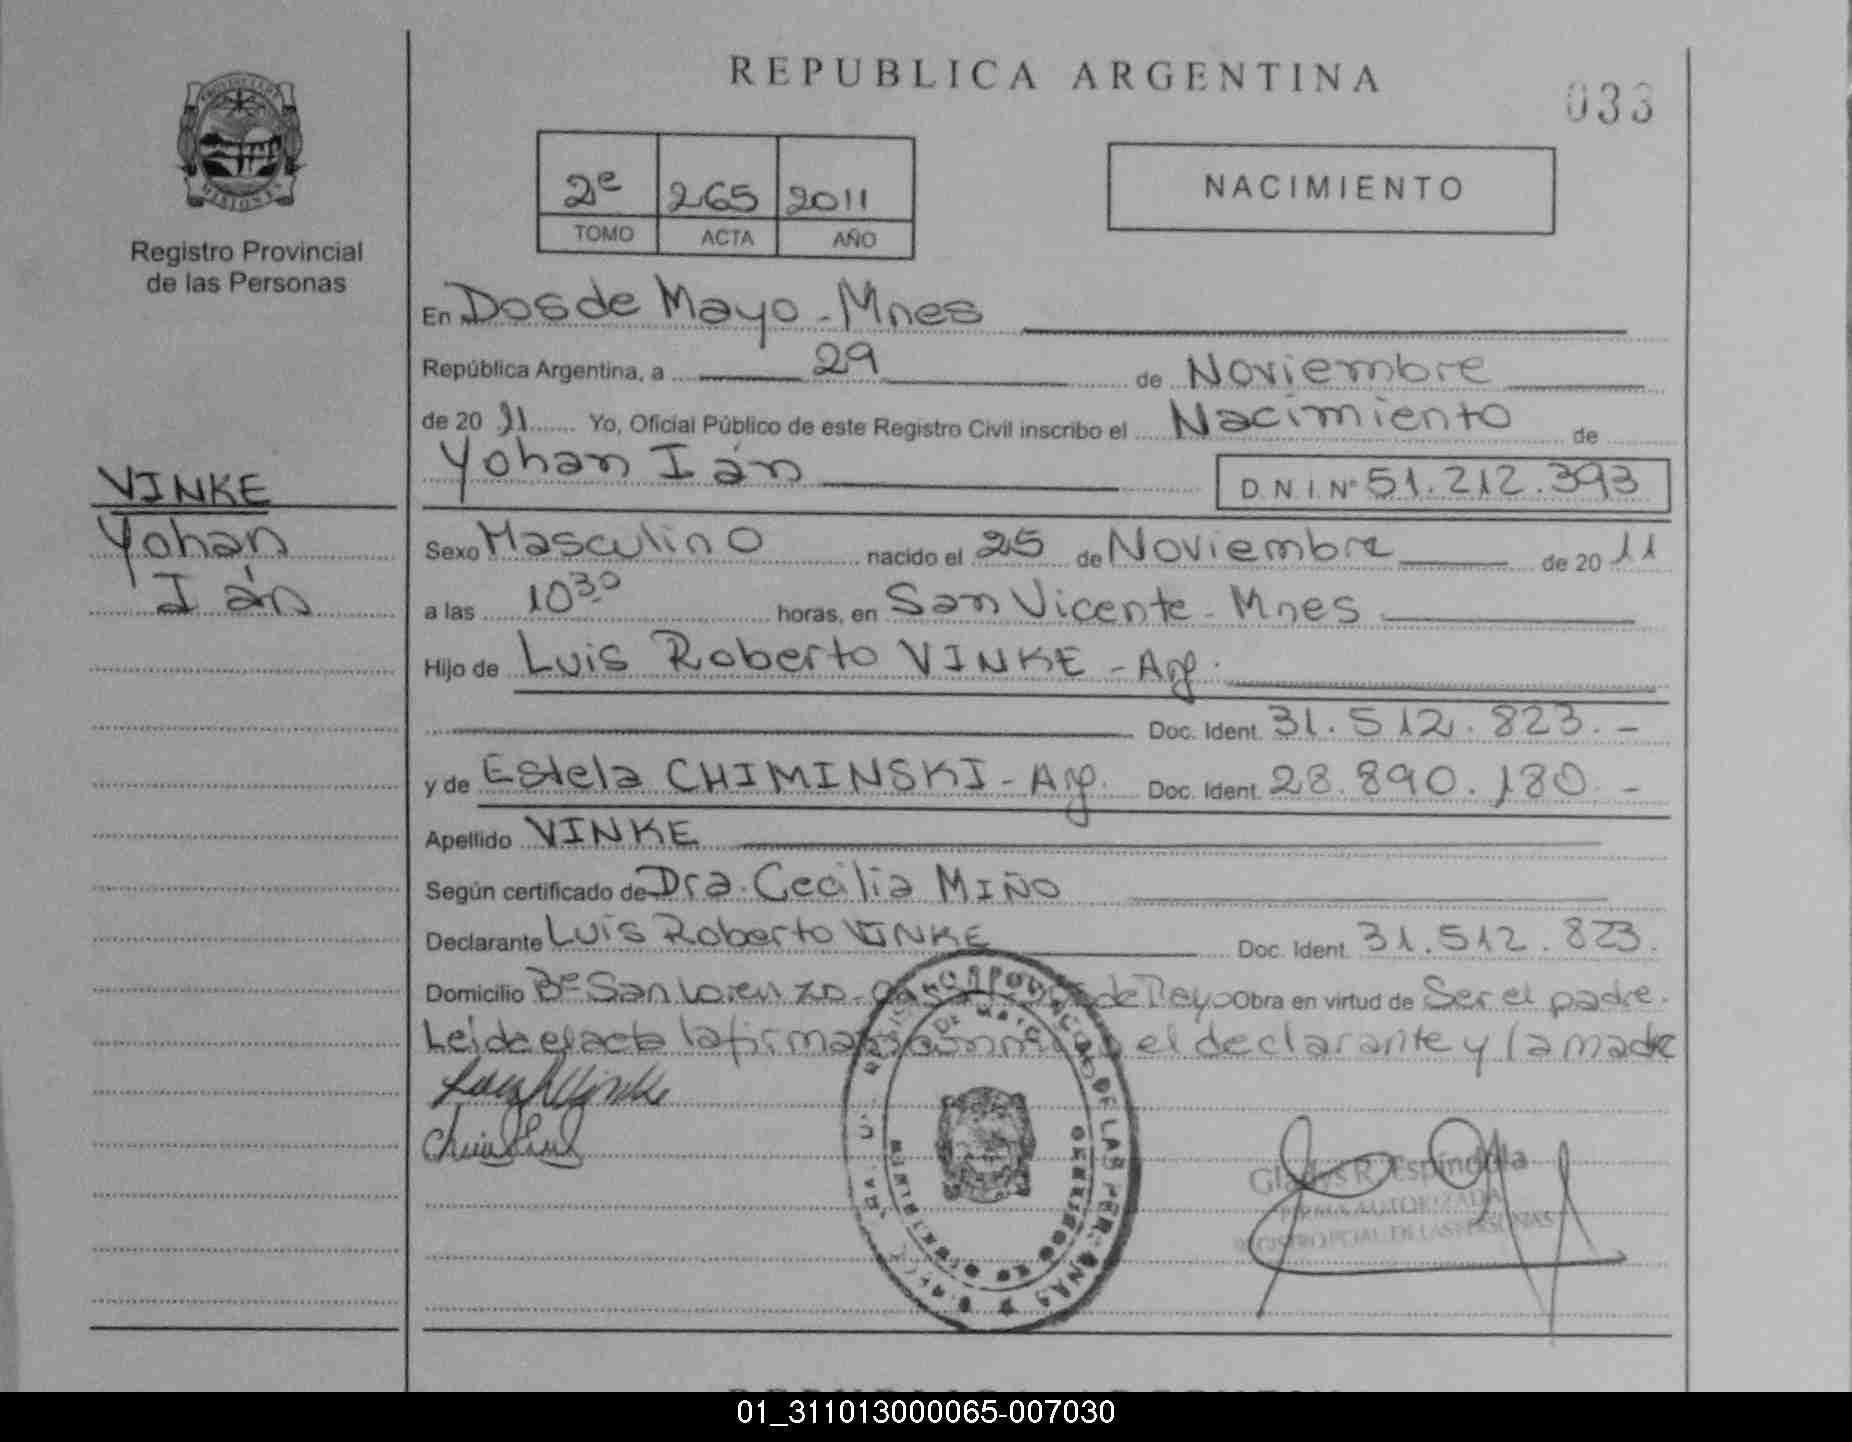 REPUBLICA ARGENTINA
033
2e 265 2011
TOMO ACTA AÑO
NACIMIENTO
PROVINCIA DE MISIONES
Registro Provincial
de las Personas
En Dos de Mayo - Mnes
República Argentina, a 29 de Noviembre
de 20 11 Yo, Oficial Público de este Registro Civil inscribo el Nacimiento de
Yohan Ián D.N.I. Nº 51.212.393
VINKE
Yohan
Ián
Sexo Masculino nacido el 25 de Noviembre de 20 11
a las 10 30 horas, en San Vicente - Mnes
Hijo de Luis Roberto VINKE - Arg.
Doc. Ident. 31.512.823.-
y de Estela CHIMINSKI - Arg. Doc. Ident. 28.890.180.-
Apellido VINKE
Según certificado de Dra. Cecilia MIÑO
Declarante Luis Roberto VINKE Doc. Ident. 31.512.823.
Domicilio Bº San Lorenzo - de Mayo Obra en virtud de Ser el padre.
Leída el acta la firman el declarante y la madre
Gladys R. Espíndola
FIRMA AUTORIZADA
REGISTRO PCIAL. DE LAS PERSONAS
01_311013000065-007030